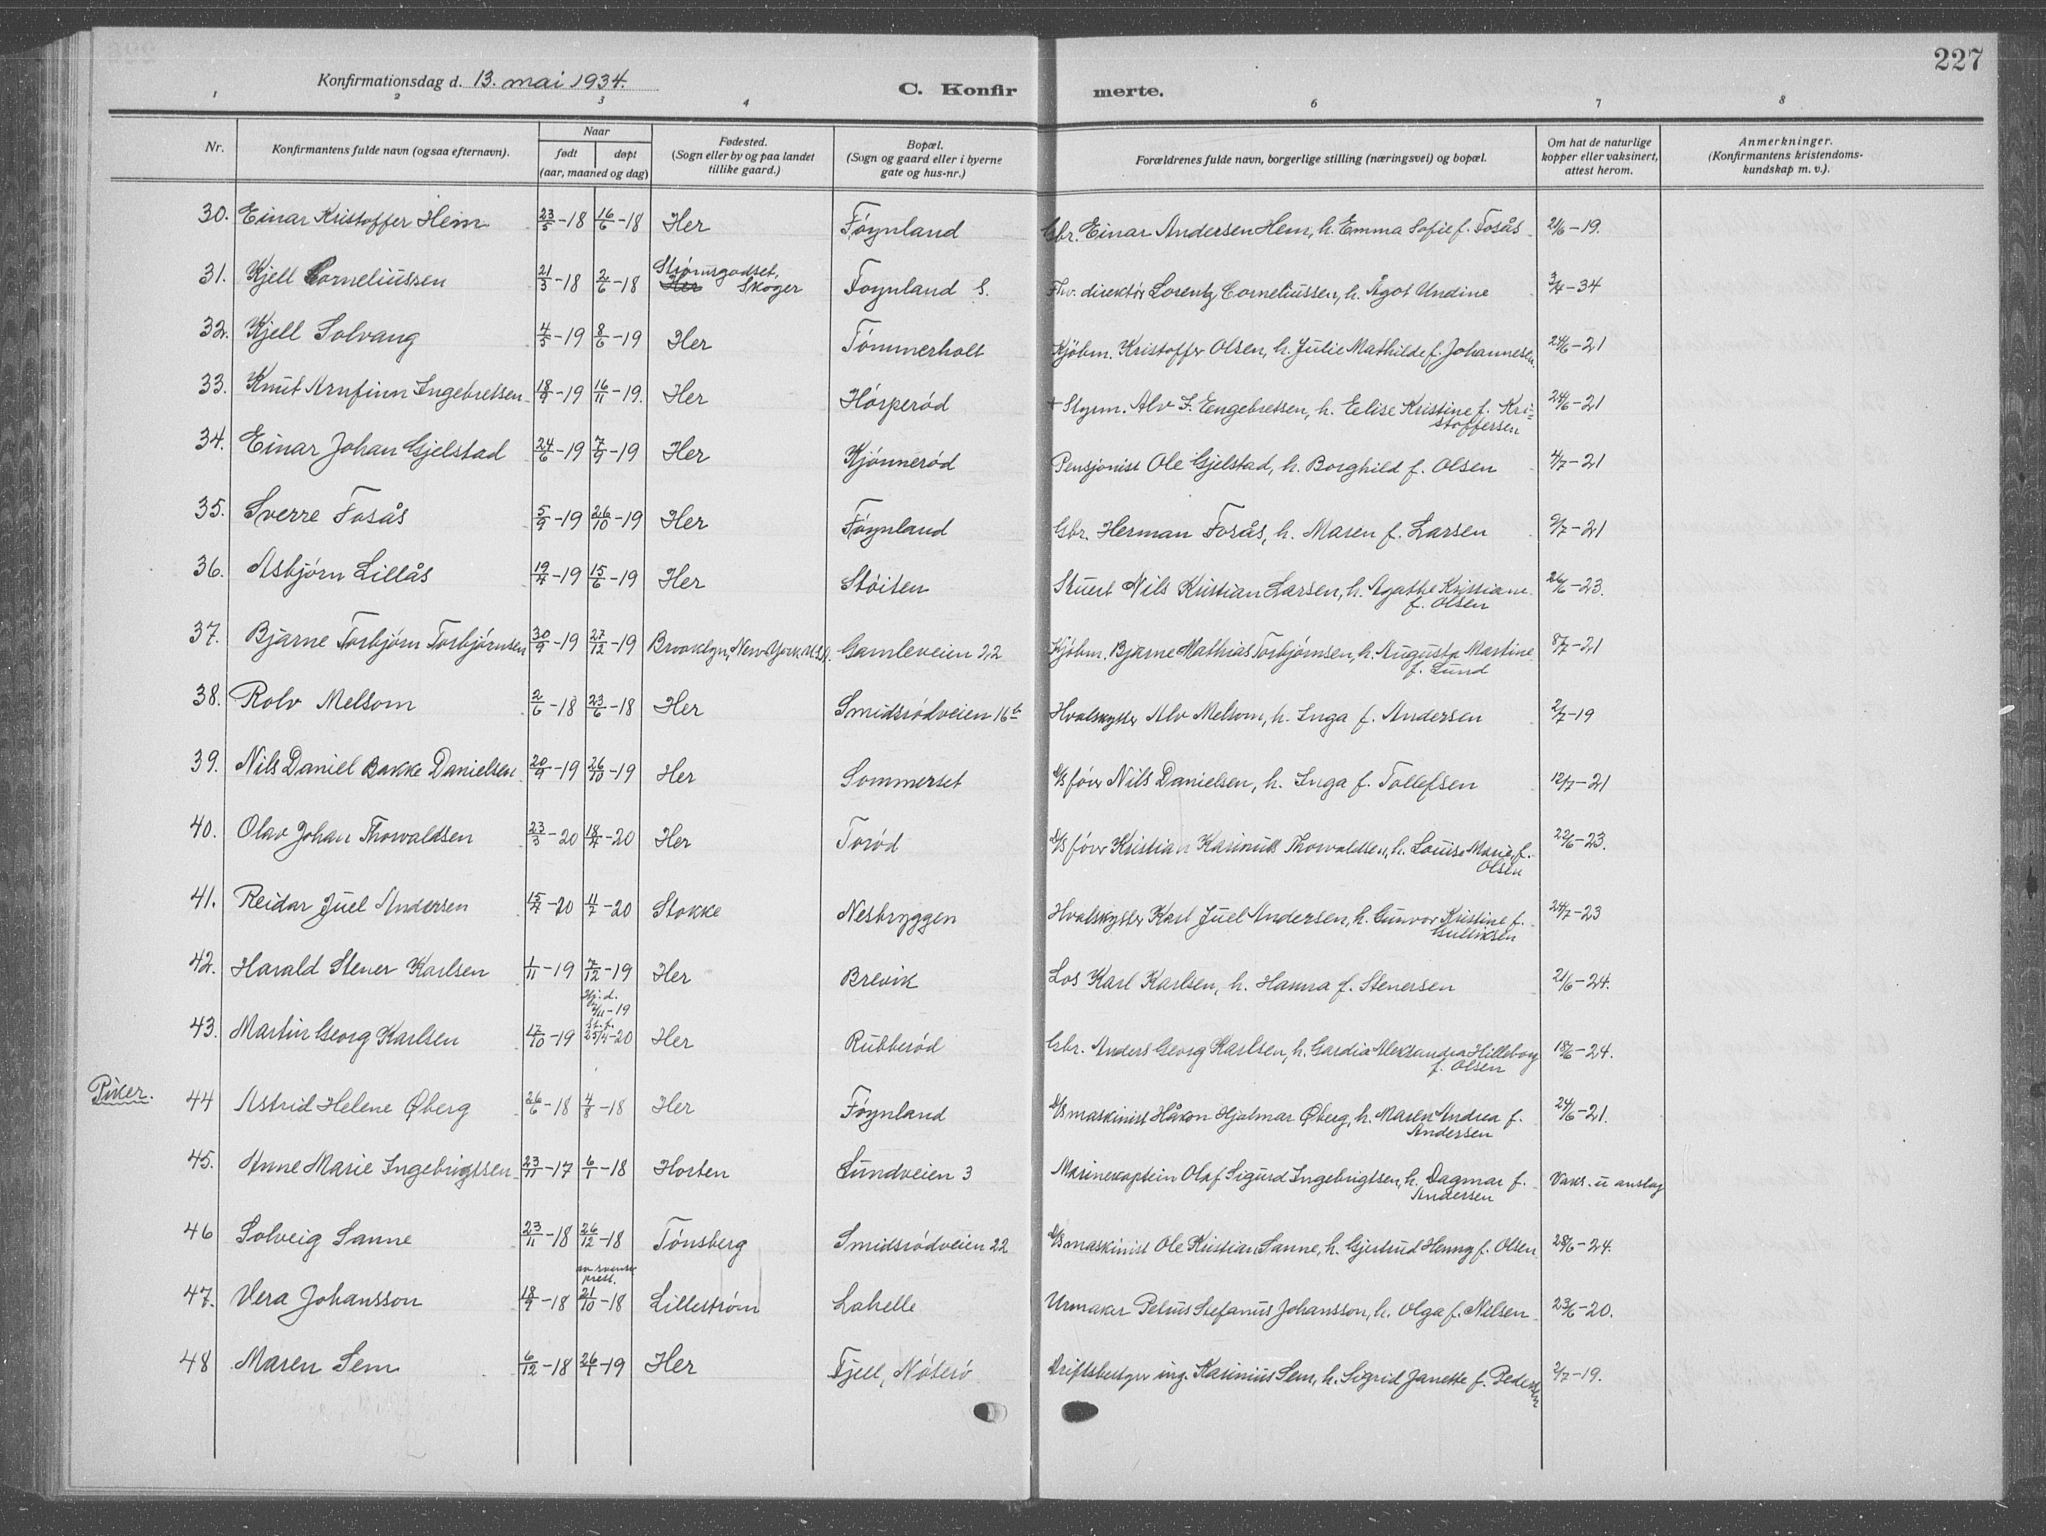 227
Konfirmationsdag d. 13. mai 1934.
C. Konfir merte.
1 2 3 4 6 7 8
Nr.
Konfirmantens fulde navn (ogsaa efternavn).
Naar
født døpt
(aar, maaned og dag)
Fødested.
(Sogn eller by og paa landet
tillike gaard.)
Bopæl.
(Sogn og gaard eller i byerne
gate og hus-nr.)
Forældrenes fulde navn, borgerlige stilling (næringsvei) og bopæl.
Om hat de naturlige
kopper eller vaksinert,
attest herom.
Anmerkninger.
(Konfirmantens kristendoms-
kundskap m. v.).
30. Einar Kristoffer Hem 23/5-18 16/6-18 Her Føynland Gbr. Einar Andersen Hem, h. Emma Sofie f. Fosås 21/6-19.
31. Kjell Corneliussen 21/3-18 2/6-18 Strømsgodset, Skoger Føynland S. Fhv. direktør Lorentz Corneliussen, h. Ågot Undine 3/4-34
32. Kjell Solvang 4/5-19 8/6-19 Her Tømmerholt Kjøbm. Kristoffer Olsen, h. Julie Mathilde f. Johannesen 24/6-21
33. Knut Arnfinn Ingebretsen 18/9-19 16/11-19. Her Hørperød + Styrm. Alv F. Engebretsen, h. Elise Kristine f. Kri=
stoffersen 24/6-21
34. Einar Johan Gjelstad 24/6-19 7/9-19 Her Kjønnerød Pensjonist Ole Gjelstad, h. Borghild f. Olsen 4/7-21
35. Sverre Fosås 5/9-19 26/10-19 Her Føynland Gbr. Herman Fosås, h. Maren f. Larsen 9/7-21
36. Asbjørn Lillås 19/4-19 15/6-19 Her Støiten Stuert Nils Kristian Larsen, h. Agathe Kristiane
f. Olsen 26/6-23.
37. Bjarne Torbjørn Torbjørnsen 30/9-19 27/12-19 Brooklyn, New York U.S.A. Gamleveien 22 Kjøbm. Bjarne Mathias Torbjørnsen, h. Augusta Martine
f. Lund 8/7-21
38. Rolv Melsom 2/6-18 23/6-18 Her Smidsrødveien 16 b Hvalskytter Alv Melsom, h. Inga f. Andersen 2/7-19
39. Nils Daniel Bakke Danielsen 20/9-19 26/10-19 Her Sommerset S/S fører Nils Danielsen, h. Inga f. Tollefsen 12/7-21
40. Olav Johan Thorvaldsen 23/3-20 18/4-20 Her Torød S/S fører Kristian Karinius Thorvaldsen, h. Louise Marie f.
Olsen 22/6-23.
41. Reidar Juel Andersen 15/4-20 11/7-20 Stokke Nesbryggen Hvalskytter Karl Juel Andersen, h. Gunvor Kristine f.
Gulliksen 24/7-23
42. Harald Stener Karlsen 1/11-19 7/12-19 Her Brevik Los Karl Karlsen, h. Hanna f. Stenersen 21/6-24.
43. Martin Georg Karlsen 17/10-19 Hj.d.
2/11-19
St. f.
25/4-20 Her Rubberød Gbr. Anders Georg Karlsen, h. Gardia Aleksandra Hilleborg
f. Olsen 18/6-24.
Piker.
44 Astrid Helene Øberg 26/6-18 4/8-18 Her Føynland S/S maskinist Håkon Hjalmar Øberg, h. Maren Andrea f.
Andersen 24/6-21.
45. Anne Marie Ingebrigtsen 23/11-17 6/1-18 Horten Lundveien 3 Marinekaptein Olaf Sigurd Ingebrigtsen, h. Dagmar f.
Andersen Vaks. u anslag
46 Solveig Sanne 23/11-18 26/12-18 Tønsberg Smidsrødveien 22 S/S maskinist Ole Kristian Sanne, h. Gjertrud Henny f. Olsen 28/6-24.
47. Vera Johansson 18/9-18 av svensk
prest.
21/10-18 Lillestrøm Lahelle Urmaker Petrus Stefanus Johansson, h. Olga f. Nilsen 23/6-20.
48 Maren Sem 6/12-18 26/1-19 Her Fjell, Nøterø Driftsbestyrer ing. Karinius Sem, h. Sigrid Janette f. Pedersen 2/7-19.